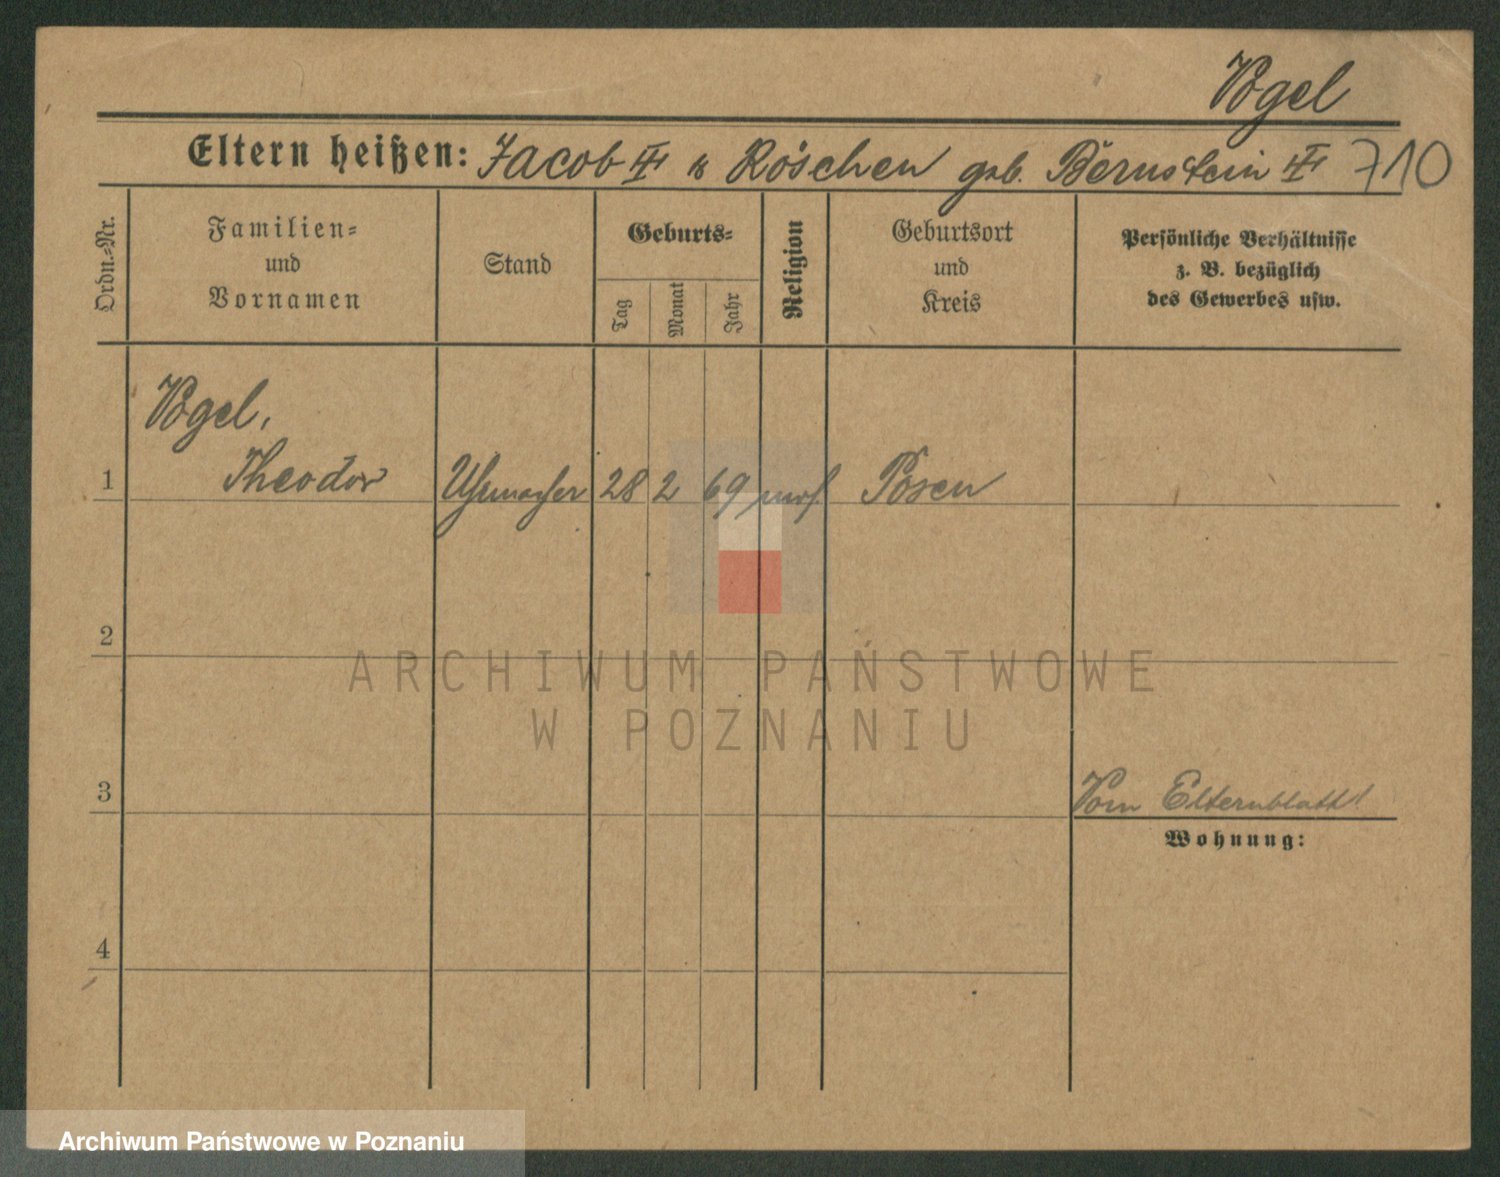 Vogel
Eltern heißen: Jacob ♰ u Röschen geb. Bernstein ♰ 710
Ordn.-Nr.
Familien-
und
Vornamen
Stand
Geburts-
Tag
Monat
Jahr
Religion
Geburtsort
und
Kreis
Persönliche Verhältnisse
z. B. bezüglich
des Gewerbes usw.
Vogel,
1 Theodor Uhrmacher 28 2 69 mos. Posen
2
ARCHIWUM PAŃSTWOWE
W POZNANIU
3 Vom Elternblatt!
Wohnung:
4
Archiwum Państwowe w Poznaniu